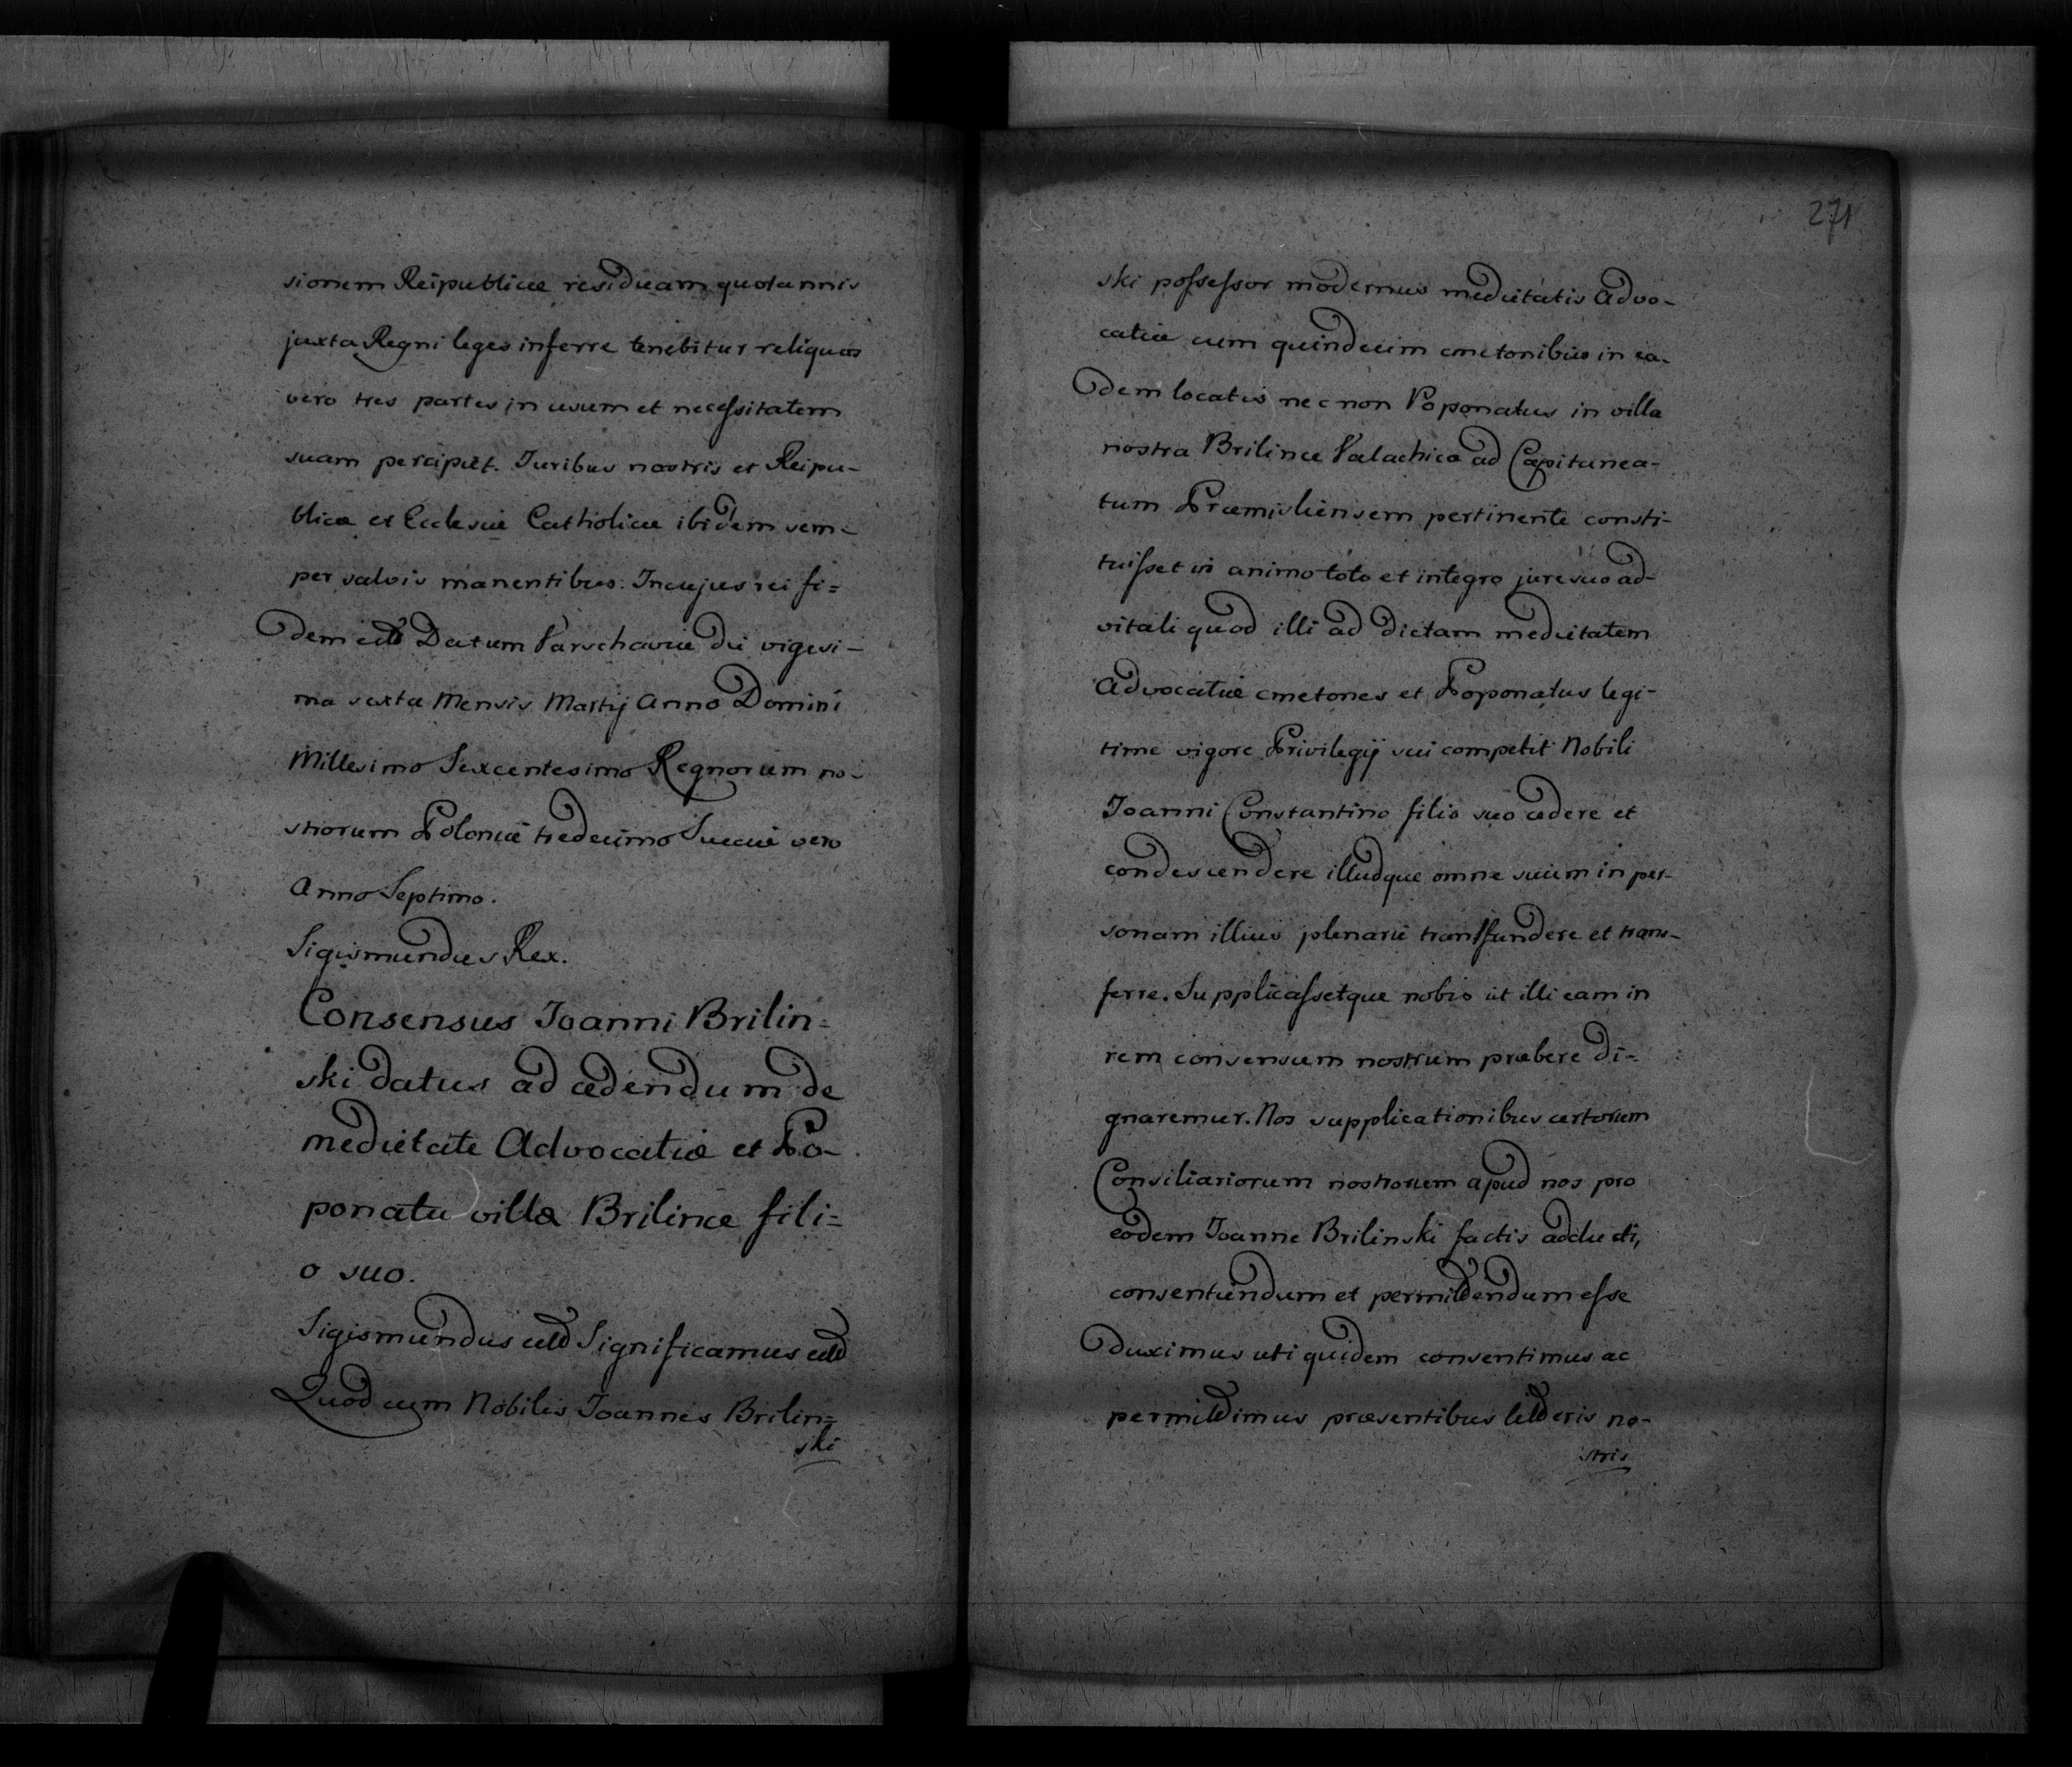 sionem Reipublicæ residuam quotannis
juxta Regni leges inferre tenebitur reliquas
vero tres partes in usum et necessitatem
suam percipiet. Juribus nostris et Reipu-
blicæ et Ecclesiæ Catholicæ ibidem sem-
per salvis manentibus. In cujus rei fi=
dem ett Datum Varschaviæ die vigesi-
ma sexta Mensis Martij Anno Domini
Millesimo Sexcentesimo Regnorum no-
strorum Poloniæ tredecimo Sueciæ vero
Anno Septimo.
Sigismundus Rex.
Consensus Joanni Brilin=
ski datus ad cedendum de
medietate Advocatiæ et Po-
ponatu villæ Brilince fili=
o suo.
Sigismundus ett Significamus ett
Quod cum Nobilis Joannes Brilin=
ski
271
ski possessor modernus medietatis Advo-
catiæ cum quindecim cmetonibus in ea-
dem locatis nec non Poponatus in villa
nostra Brilince Valachica ad Capitanea-
tum Præmisliensem pertinente consti-
tuisset in animo toto et integro jure suo ad-
vitali quod illi ad dictam medietatem
Advocatiæ cmetones et Poponatus legi-
time vigore Privilegij sui competit Nobili
Joanni Constantino filio suo cedere et
condescendere illudque omne suum in per-
sonam illius plenarie transfundere et trans-
ferre. Supplicassetque nobis ut illi eam in
rem consensum nostrum præbere di-
gnaremur. Nos supplicationibus certorum
Consiliariorum nostrorum apud nos pro
eodem Joanne Brilinski factis adducti,
consentiendum et permittendum esse
duximus uti quidem consentimus ac
permittimus præsentibus litteris no-
stris